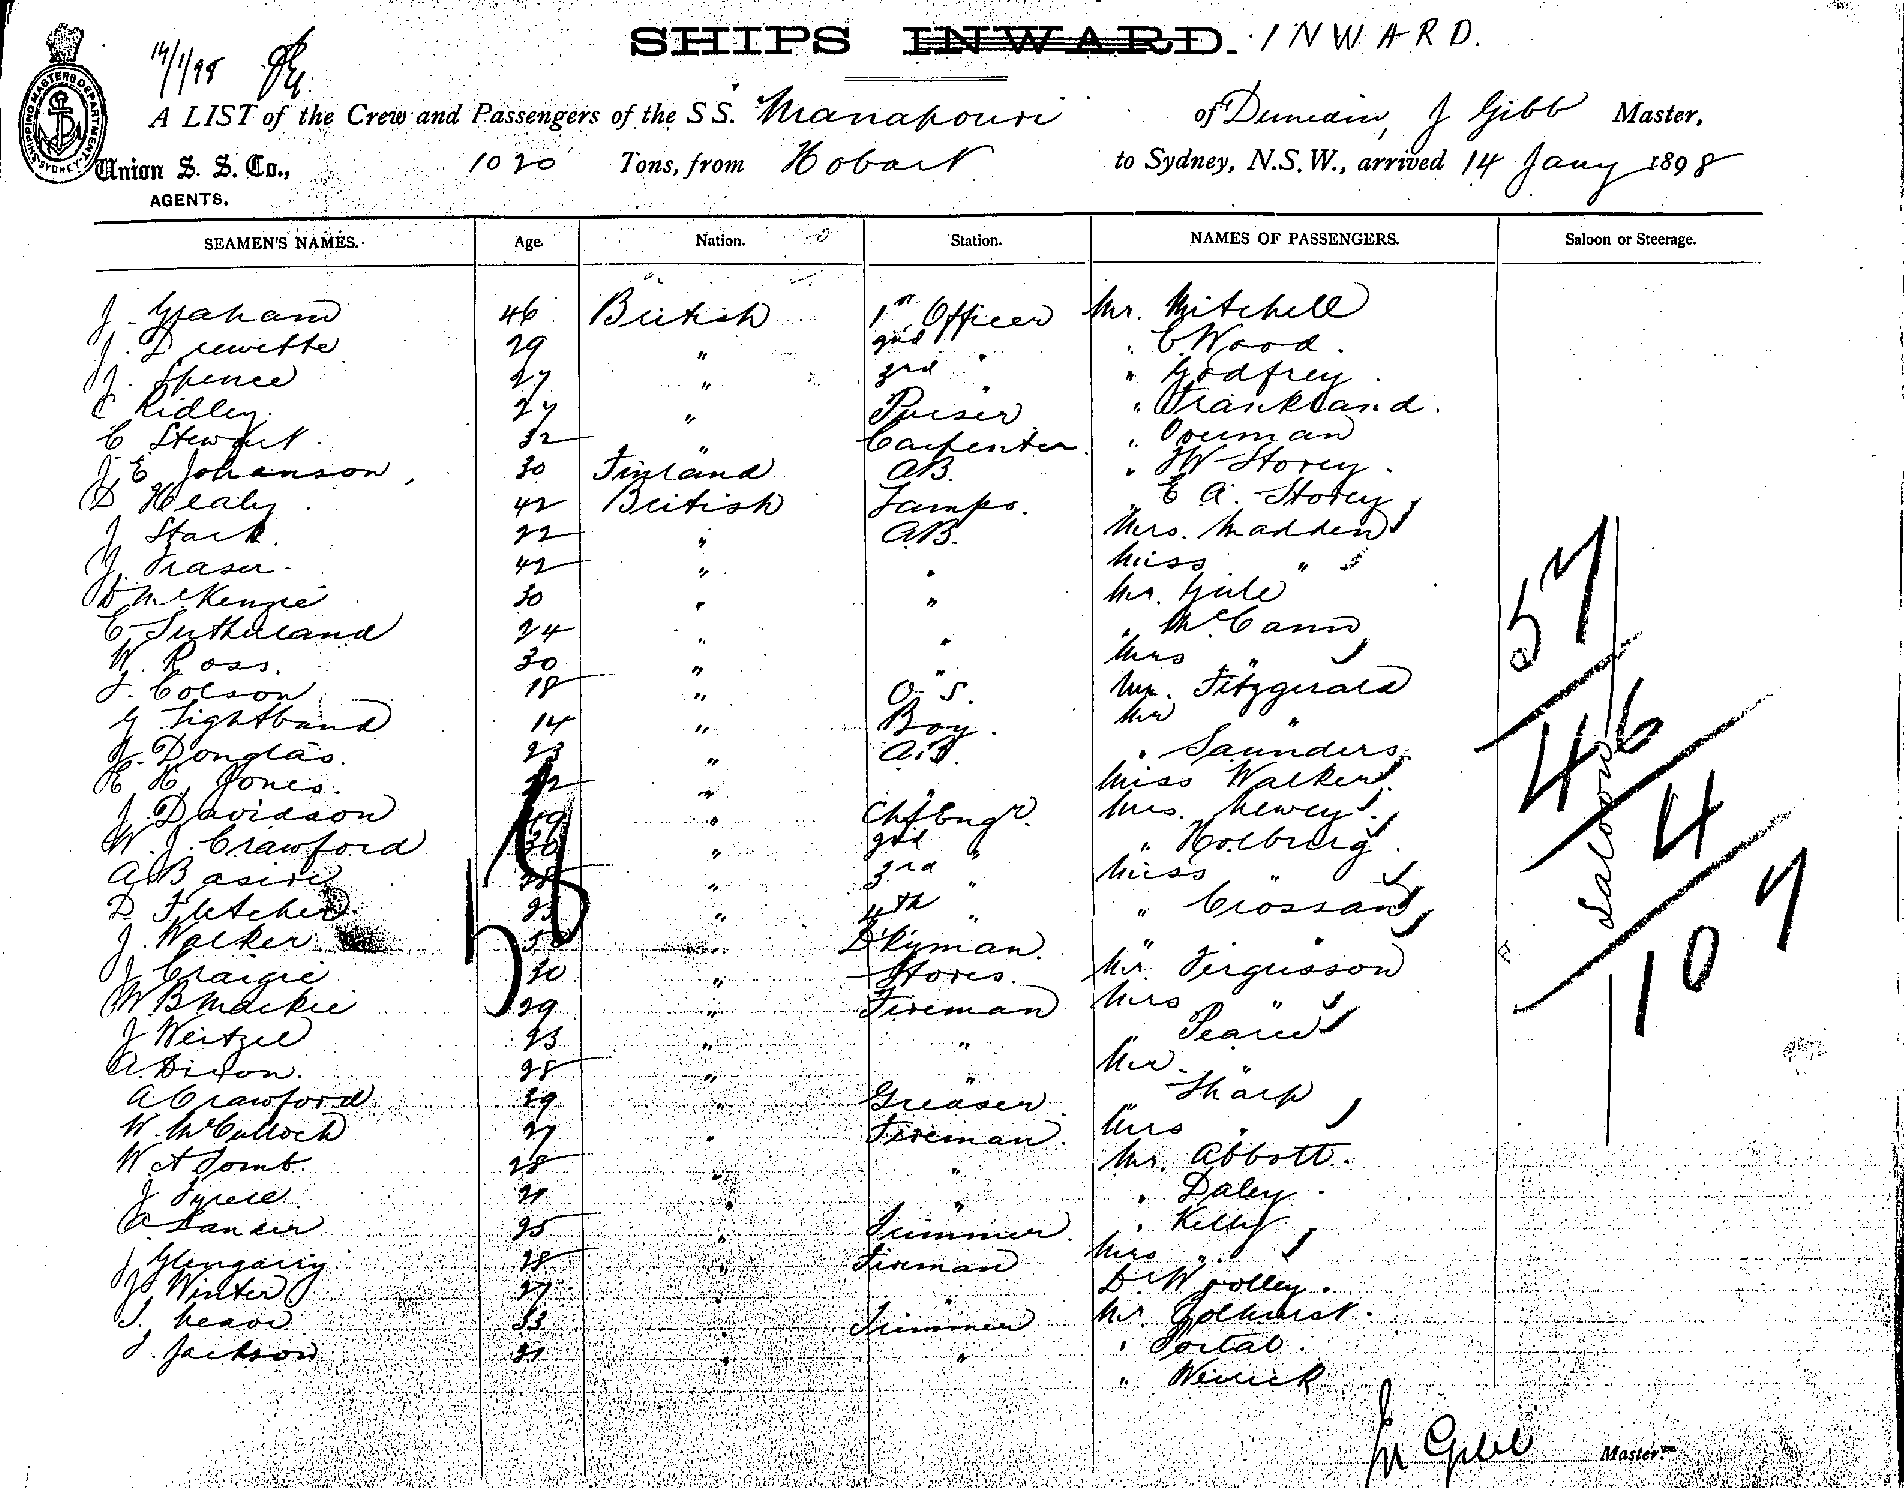 SHIPS INWARD. INWARD.
14/1/98
A LIST of the Crew and Passengers of the S S. Manapouri of Dunedin, J Gibb Master,
Union S. S. Co., 1020 Tons, from Hobart to Sydney, N.S.W., arrived 14 Jany 1898
AGENTS.
SEAMEN'S NAMES. Age. Nation. Station. NAMES OF PASSENGERS. Saloon or Steerage.
J. Graham 46 British 1st Officer Mr. Mitchell
J. Drewette 29 " 2nd " " C Wood.
J. Spence 27 " 3rd " " Godfrey.
C Ridley 27 " Purser " Frankland.
C Stewart. 32 " Carpenter "
J. E Johanson, 30 Finland AB. " JW Storey.
D Healy 42 British Lamps. " E A. Storey
J Stark. 22 " A.B. Mrs. Madden
J. Fraser. 42 " " Miss "
D McKenzie 30 " " Mr.
E Sutherland 24 " " " McCann
W. Ross. 30 " " Mrs "
J. Colson 18 " O. S. Mr. Fitzgerald
G Lightband 14 " Boy. Mr "
J. Douglas. 23 " A.B. " Saunders
H. Jones. 22 " " Miss Walker
J. Davidson " Chf Engr. Mrs.
W. J. Crawford " 2nd " " Holberg.
A " 3rd " Miss "
D Fletcher " 4th " " Crossan
J. Walker " D'kyman.
J Craigie 30 " Stores. Mr. Fergusson
W B Mackie 29 " Fireman Mrs "
J Weitzel 23 " " " Pearce
A. Dixon. 28 " " Mr. "
A Crawford 29 " Greaser " Sharp
W. McCulloch 27 " Fireman. Mrs "
W A Lomb. 28 " " Mr. Abbott.
J 21 " " " Daley.
A. Lander 25 " Trimmer " Kelly
J Glengarry 28 " Fireman Mrs "
J Winter 27 " " Dr Woolley.
33 " Trimmer Mr.
J. Jackson 21 " " " Portal.
"
58
57
46
4
107
Saloon
J Gibb Master.